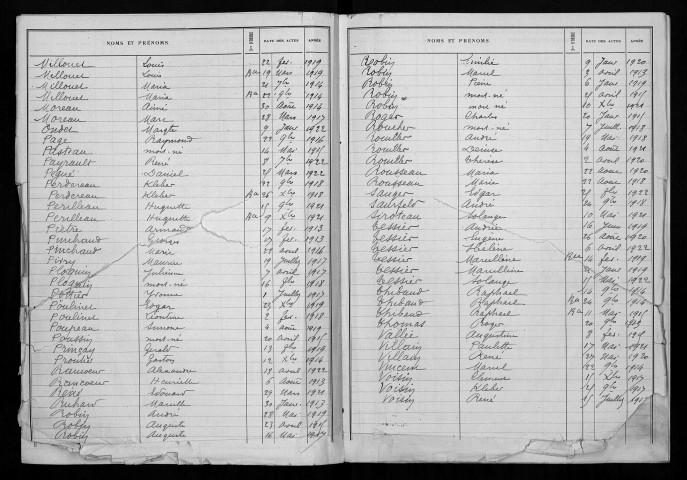 NOMS ET PRÉNOMS DATE DES ACTES ANNÉE
Millouet Louis 22 fév. 1919
Millouet Louis Bu 19 Mars 1919
Millouet Maria 21 7bre 1914
Millouet Maria Bu 22 9bre 1914
Moreau Aimé 30 Août 1914
Moreau Marc 28 Mars 1917
Oudet Margte 9 Janv 1922
Page Raymond 22 9bre 1916
mort-né 16 Mai
Payrault René 8 7bre 1922
Pequé Daniel 25 Mars 1922
Perdereau Kleber 22 9bre 1918
Perdereau Kleber Bu 26 Xbre 1918
Perilleau Huguette 15 9bre 1921
Perilleau Huguette Bu 9 Xbre 1921
Piètre Armand 17 fév. 1913
Pinchaud 17 fév. 1913
Pinchaud Marie 22 avril 1916
Maurice 19 Juillet 1917
Ploquin Julienne 7 avril 1917
Ploquin mort-né 16 9bre 1918
Pottier Yvonne 1 Juillet 1917
Poulinet Edgar 23 Xbre
Poulinet 2 fév. 1918
Poupeau Simone 4 août 1919
Poussin mort-né 20 avril
Princay 13 9bre
Gaston 12 Xbre 1914
Alexandre 13 avril 1922
Rancoeur Henriette 6 Août 1913
René Edouard 29 Mars 1920
Marcelle 30 Janv. 1913
Robin André 28 Mai 1919
Robin Auguste 23 avril
Robin Auguste 16 Mai
NOMS ET PRÉNOMS DATE DES ACTES ANNÉE
Robin Emilie 9 Janv 1920
Robin Marcel 3 avril 1913
Robin 6 Janv 1919
Robin mort-né 25 avril
Robin mort né 10 Xbre
Roger Charles 20 Janv
Roucher mort-né 7 Juill. 1913
Roullier André 19 Mai 1913
Roullier Denise 4 août 1921
Roullier Thérèse 2 avril 1920
Rousseau Maria 22 août 1920
Rousseau Marie 22 août 1918
Sauger Edgar 21 1922
André 24 9bre 1918
Siroteau Solange 10 Mai 1921
Tessier Andrée 16 Janv 1919
Tessier Eugène 26 Août 1920
Tessier Hélène 6 avril 1922
Tessier Marcelline Bu 14 fév. 1919
Tessier Marcelline 26 Janv 1919
Tessier Solange Mai 1922
Thibaud Raphaël 14 9bre
Thibaud Raphaël Bu 24 9bre
Thibaud Raphaël Bu 11 Mai
Thomas Roger 20 9bre
Vallée Augustine 8 fév.
Villain Paulette 17 Mai 1921
Villain René 27 Mai 1920
Vincent Marcel 22 9bre 1914
Voisin 15 Xbre 1917
Voisin Kleber 15 9bre 1917
Voisin René 15 Juillet